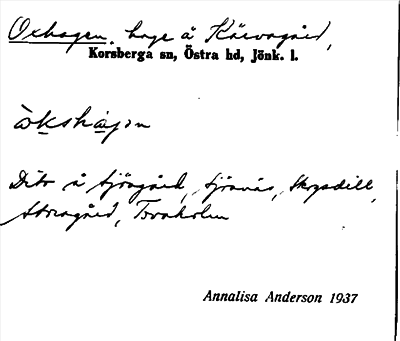 Oxhagen. hage å Kärragård,
Korsberga sn, Östra hd, Jönk. l.
òkshàgən
Dito å Sjögård, Sjöanäs, Skogsdill,
Storagård,
Annalisa Anderson 1937